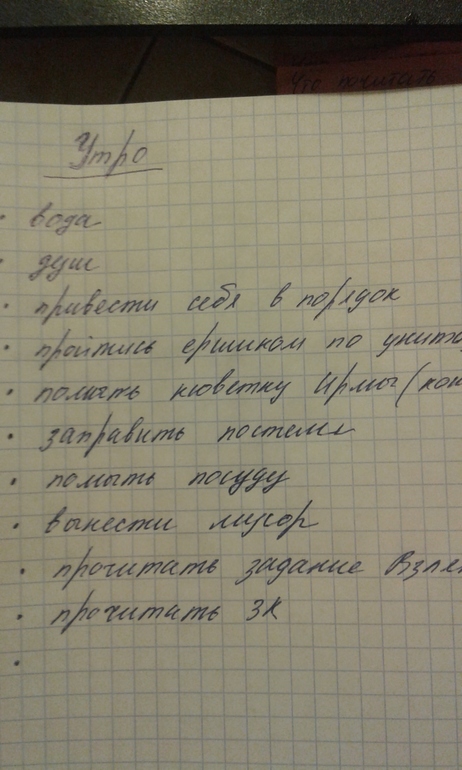 Что почитать
Утро
• вода
• душ
• привести себя в порядок
• пройтись ершиком по
• помыть кюветку Ирмы (
• заправить постель
• помыть посуду
• вынести мусор
• прочитать задание
• прочитать ЗК
•